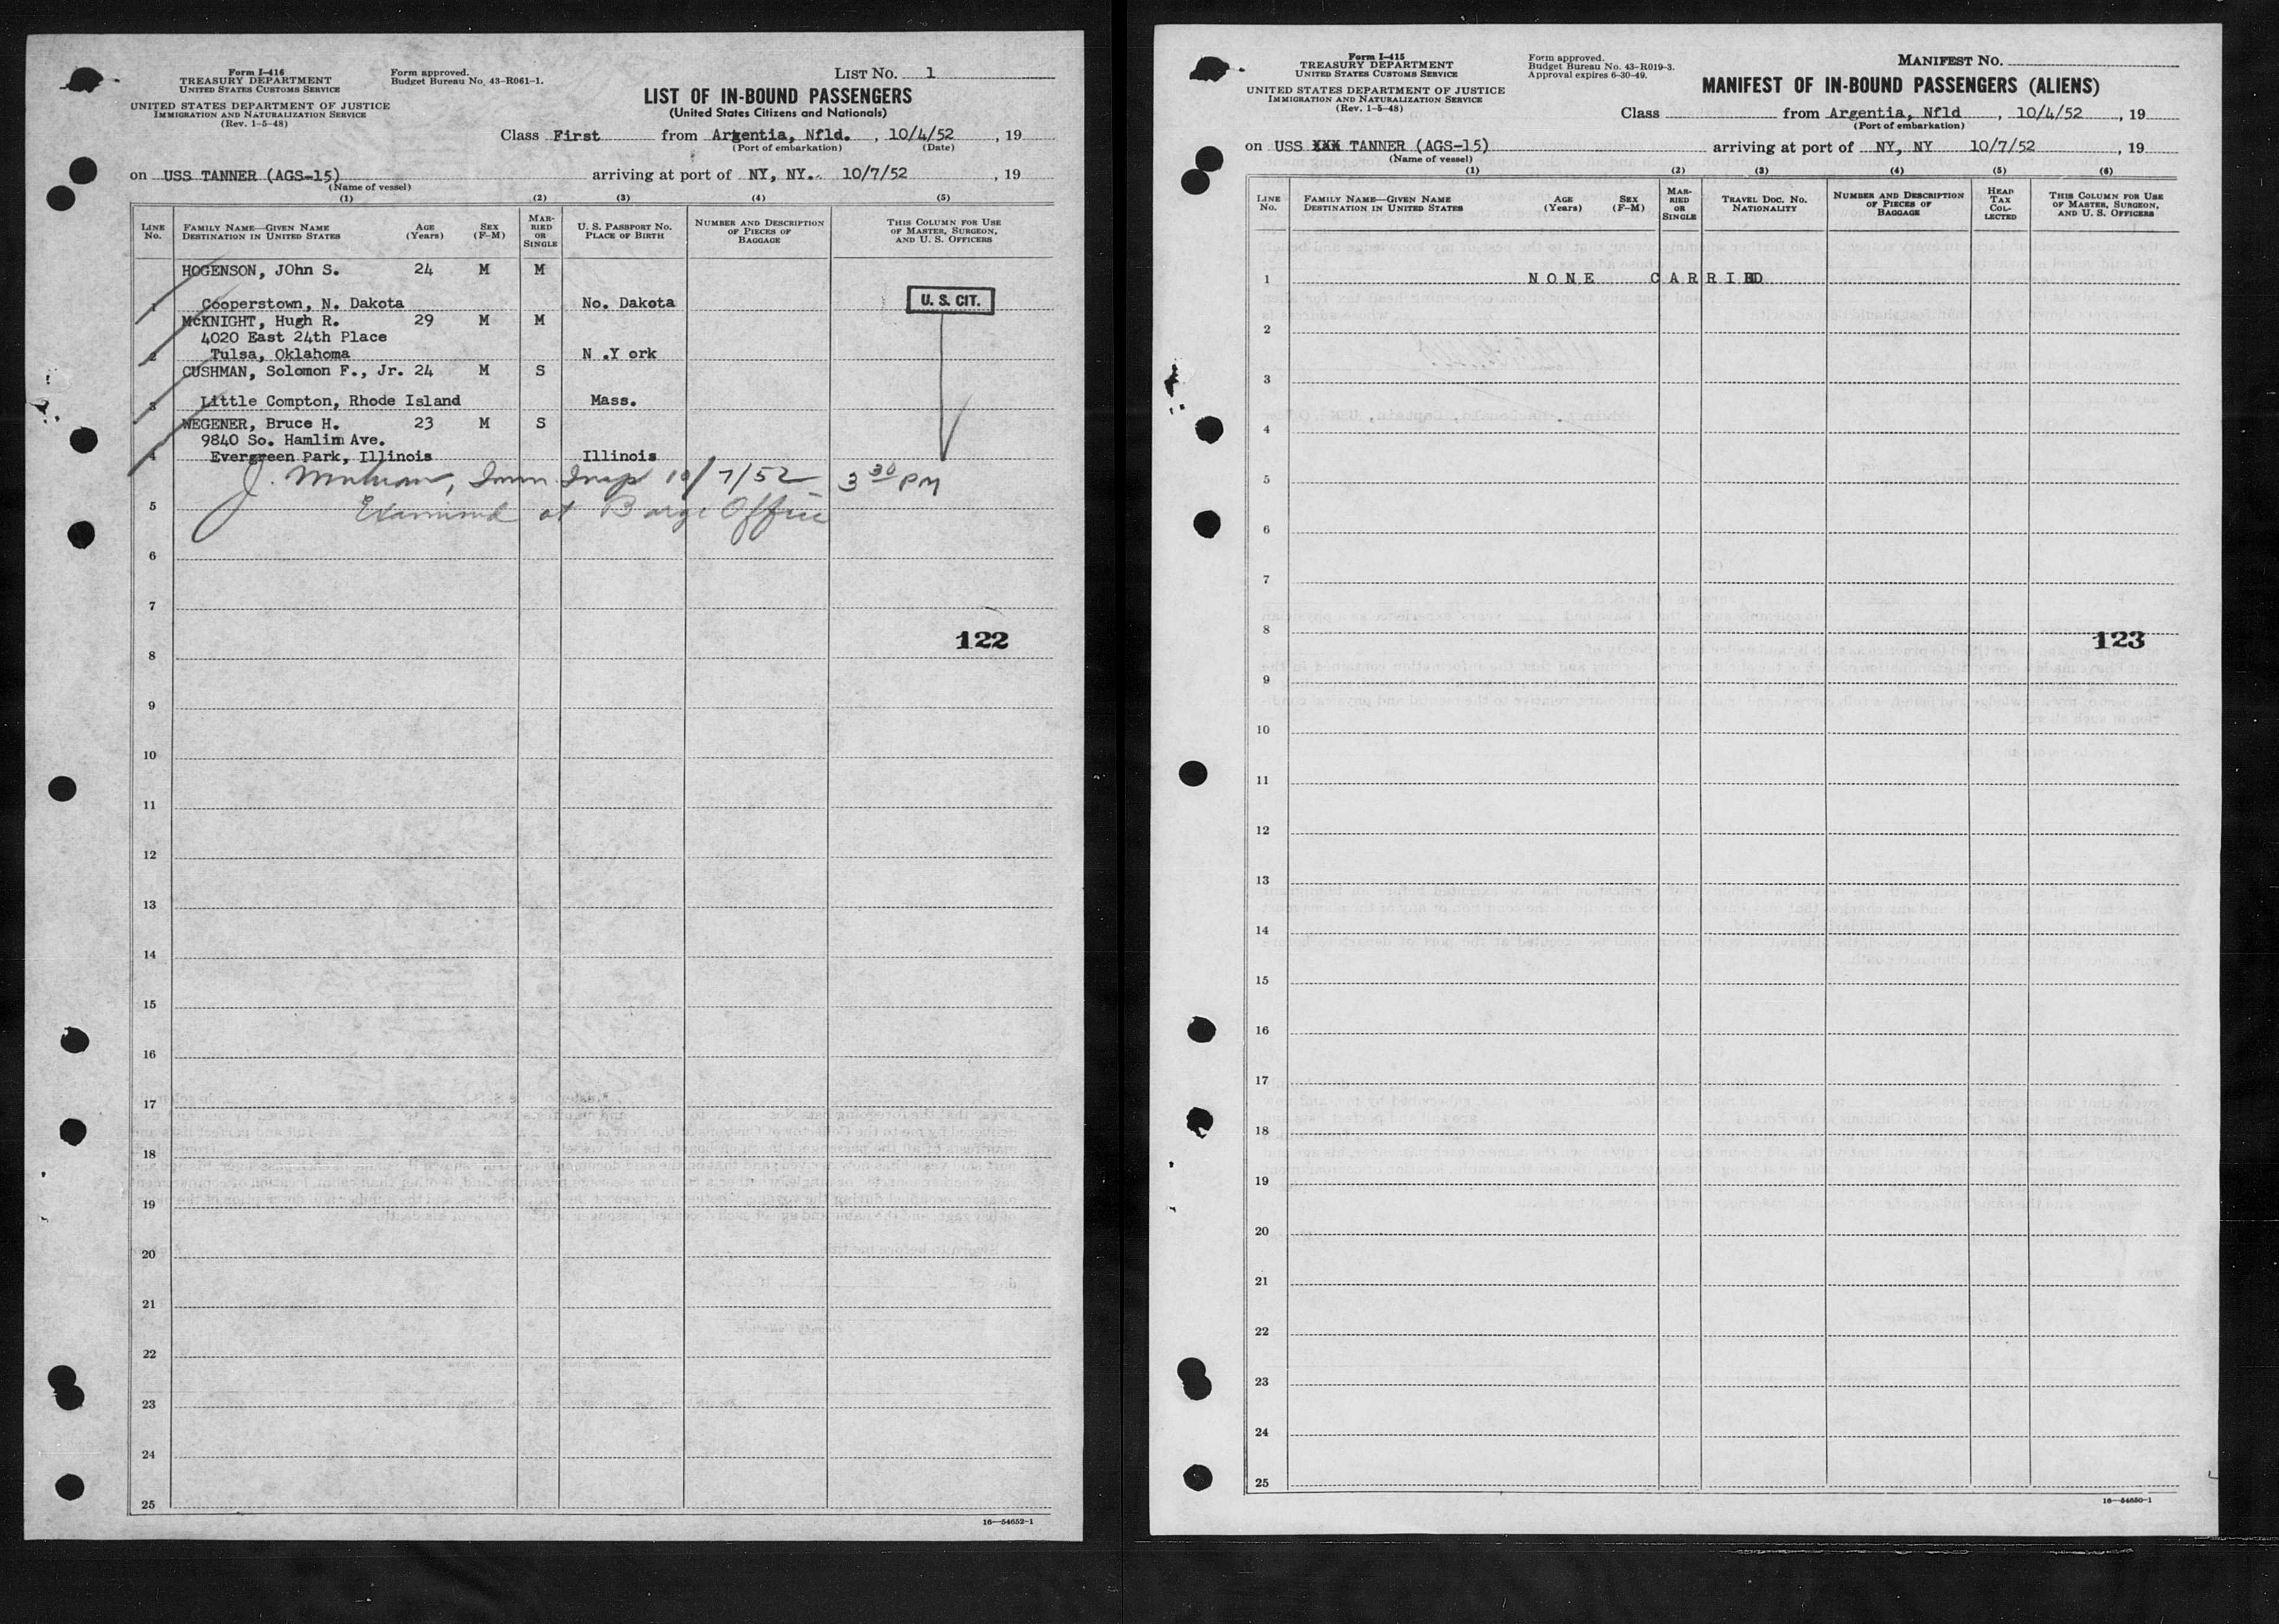 Form I-416
TREASURY DEPARTMENT
UNITED STATES CUSTOMS SERVICE
UNITED STATES DEPARTMENT OF JUSTICE
IMMIGRATION AND NATURALIZATION SERVICE
(Rev. 1-5-48)
Form approved.
Budget Bureau No. 43-R061-1.
LIST NO. 1
LIST OF IN-BOUND PASSENGERS
(United States Citizens and Nationals)
Class First from Argentia, Nfld. , 10/4/52 , 19
(Port of embarkation) (Date)
on USS TANNER (AGS-15) arriving at port of NY, NY. 10/7/52 , 19
(Name of vessel)
(1) (2) (3) (4) (5)
LINE No. FAMILY NAME—GIVEN NAME DESTINATION IN UNITED STATES AGE (Years) SEX (F-M) MARRIED OR SINGLE U. S. PASSPORT NO. PLACE OF BIRTH NUMBER AND DESCRIPTION OF PIECES OF BAGGAGE THIS COLUMN FOR USE OF MASTER, SURGEON, AND U. S. OFFICERS
HOGENSON, JOhn S. 24 M M
1 Cooperstown, N. Dakota No. Dakota U. S. CIT.
McKNIGHT, Hugh R. 29 M M
4020 East 24th Place
2 Tulsa, Oklahoma N .Y ork
CUSHMAN, Solomon F., Jr. 24 M S
3 Little Compton, Rhode Island Mass.
WEGENER, Bruce H. 23 M S
9840 So. Hamlin Ave.
4 Evergreen Park, Illinois Illinois
J. Imm. Insp 10/7/52 3 30 PM
5 Examined at Barge Office
6
7
122
8
9
10
11
12
13
14
15
16
17
18
19
20
21
22
23
24
25
16—54652-1
Form I-415
TREASURY DEPARTMENT
UNITED STATES CUSTOMS SERVICE
UNITED STATES DEPARTMENT OF JUSTICE
IMMIGRATION AND NATURALIZATION SERVICE
(Rev. 1-5-48)
Form approved.
Budget Bureau No. 43-R019-3.
Approval expires 6-30-49.
MANIFEST NO.
MANIFEST OF IN-BOUND PASSENGERS (ALIENS)
Class from Argentia, Nfld , 10/4/52 , 19
(Port of embarkation)
on USS XXX TANNER (AGS-15) arriving at port of NY, NY 10/7/52 , 19
(Name of vessel)
(1) (2) (3) (4) (5) (6)
LINE No. FAMILY NAME—GIVEN NAME DESTINATION IN UNITED STATES AGE (Years) SEX (F-M) MARRIED OR SINGLE TRAVEL DOC. NO. NATIONALITY NUMBER AND DESCRIPTION OF PIECES OF BAGGAGE HEAD TAX COLLECTED THIS COLUMN FOR USE OF MASTER, SURGEON, AND U. S. OFFICERS
1 N O N E C A R R I E D
2
3
4
5
6
7
8
123
9
10
11
12
13
14
15
16
17
18
19
20
21
22
23
24
25
16—54650-1